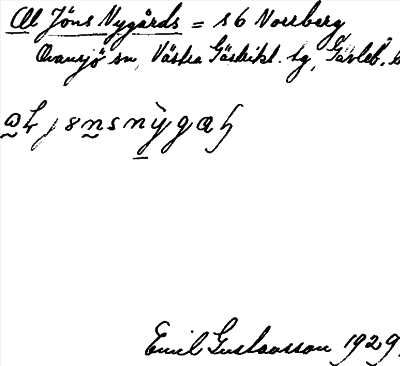 Al Jöns Nygårds = s 6 Norrberg
Ovansjö sn, Västra Gästrikl. tg, Gävleb. l
Emil Gustavsson 1929.